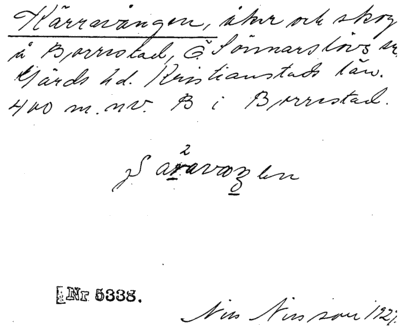 Kärravången, åker och skog
å Borrestad, Ö Sönnarslövs sn,
Gärds hd. Kristianstads län.
400 m. nv. B i Borrestad.
Nr 5338.
Nils Nilsson 1927.